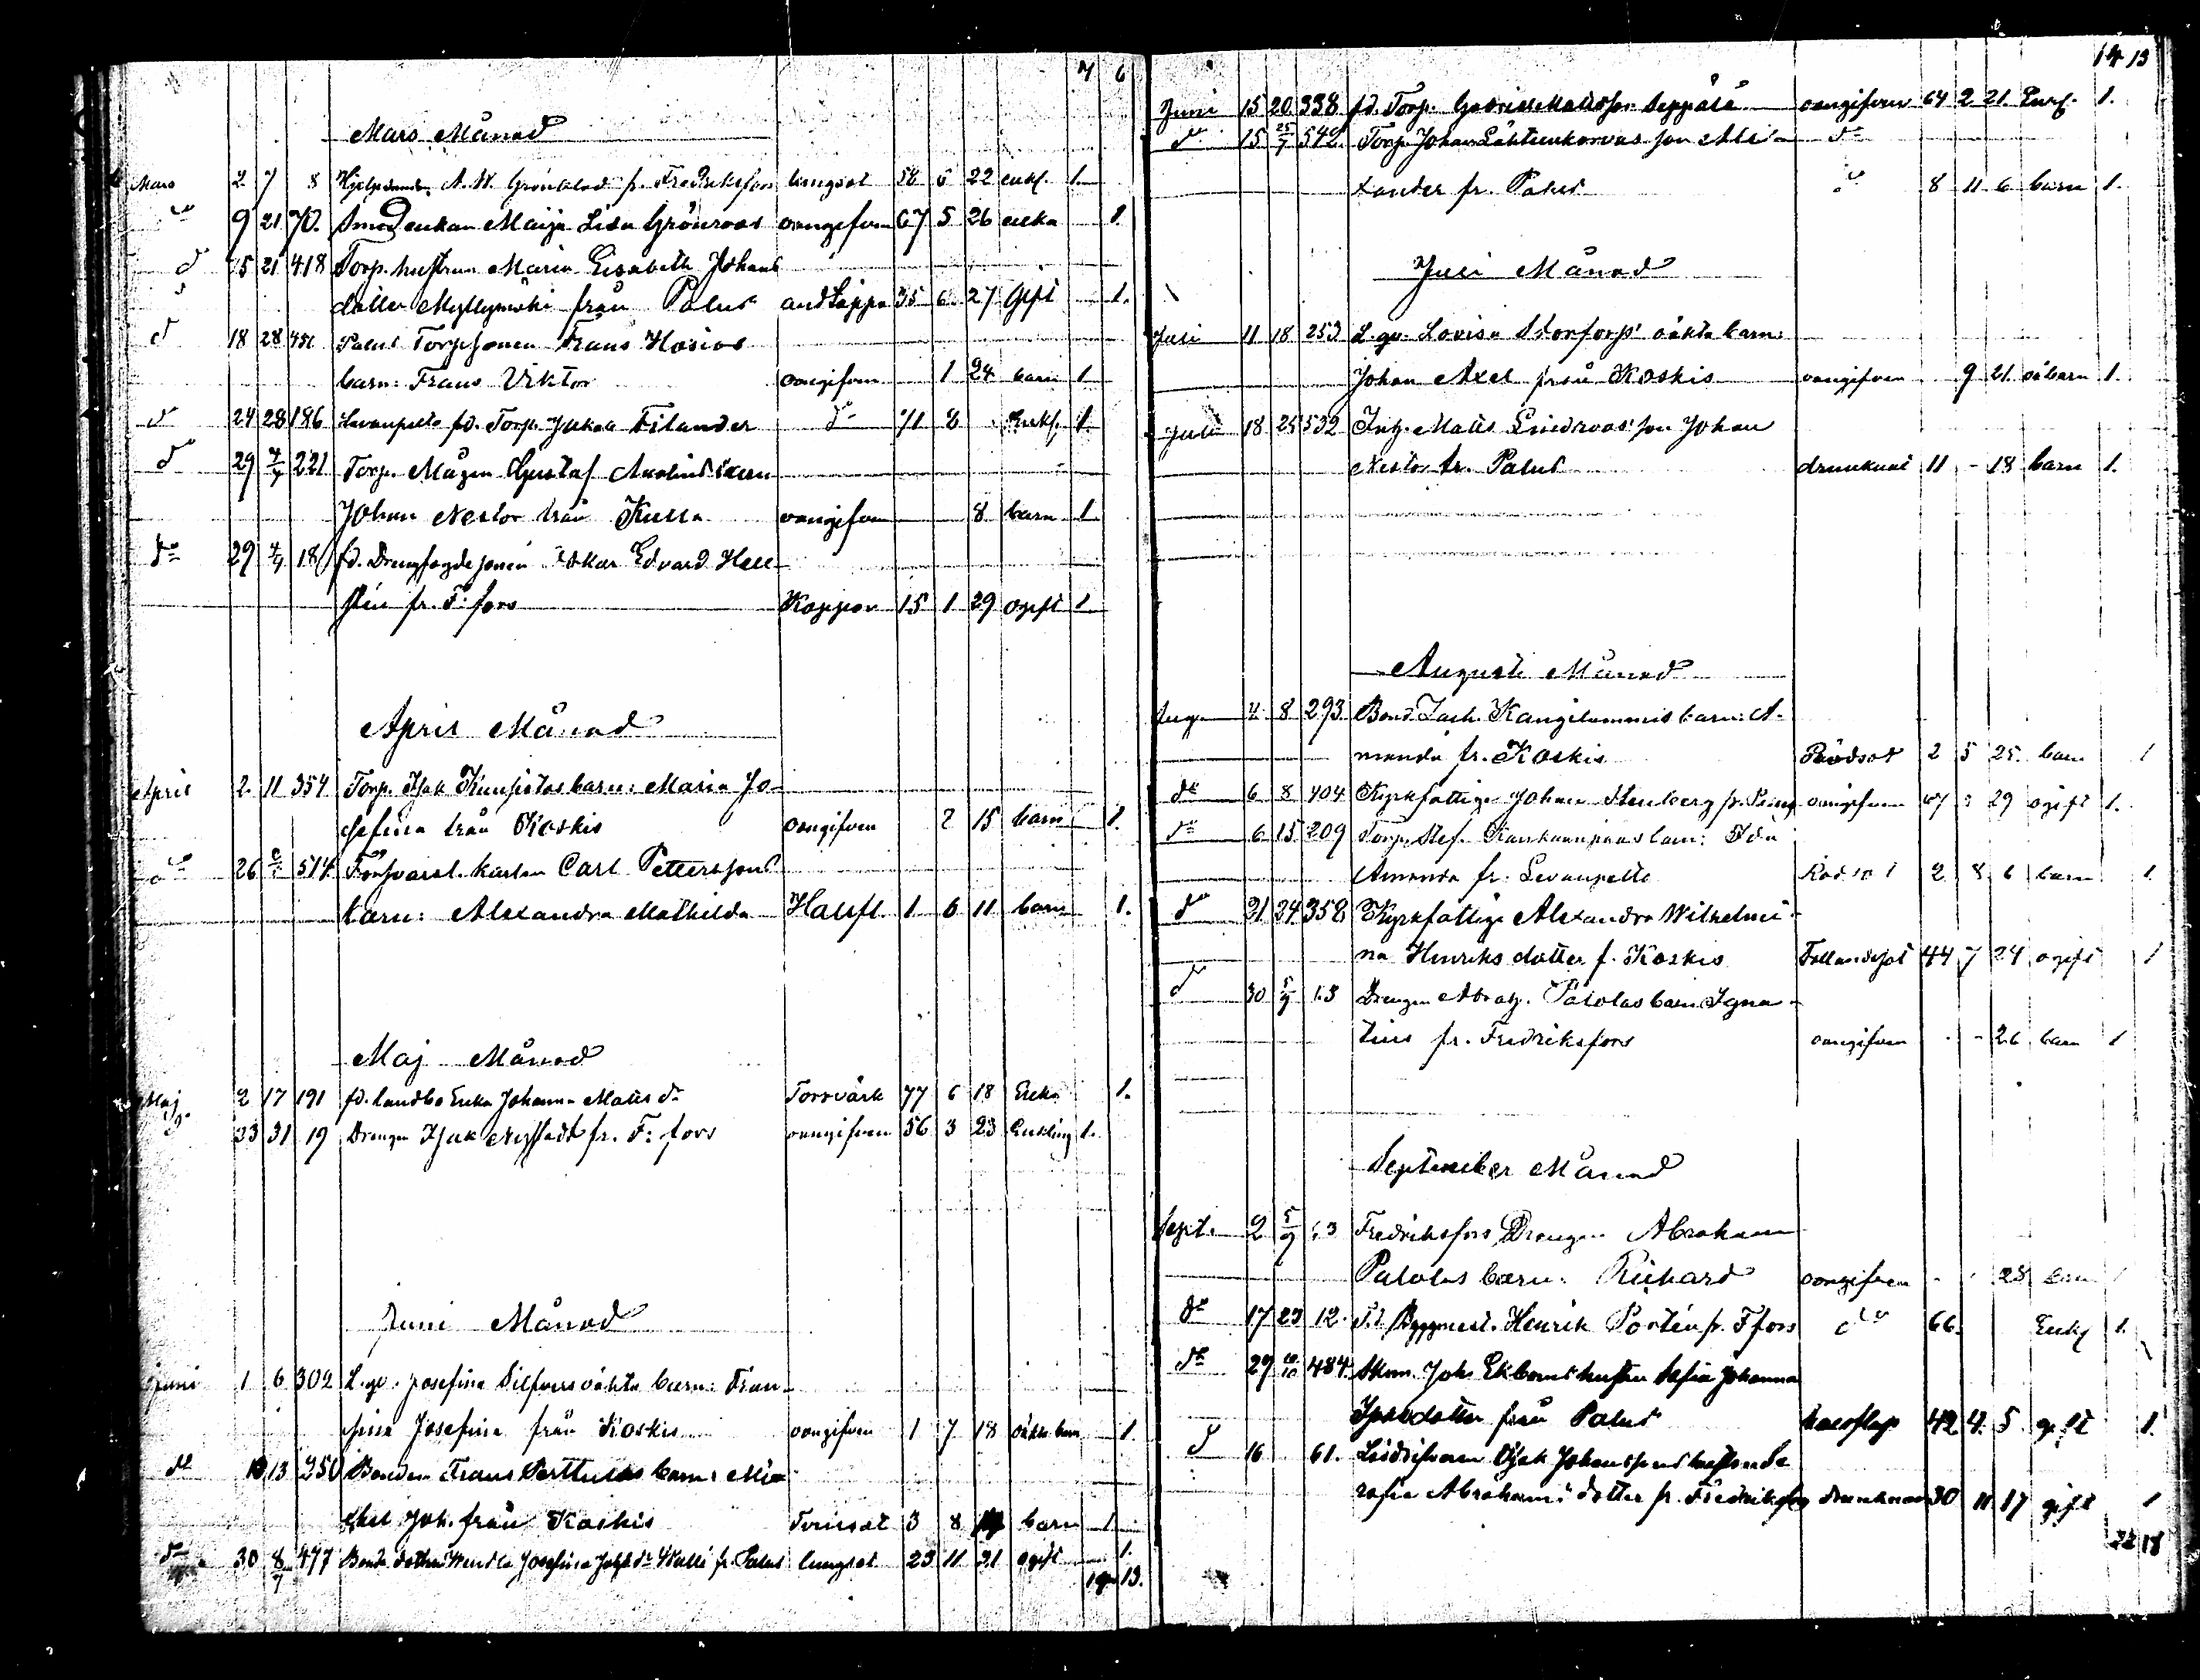 7 6
Mars Månad
Mars 2 7 8 A. W. Grönblad fr. Fredriksfors lungsot 58 5 22 enkl. 1.
do 9 21 70. Smedenkan Maija Lisa Grönroos oangifven 67 5 26 enka 1.
do 15 21 418 Torp. hustrun Maria Elisabeth Johans
dotter Myllymäki från Palus andtäppa 35 6 27 Gift 1.
do 18 28 451 Palus Torpsonen Frans Hosios
barn: Frans Viktor oangifven 1 24 barn 1
do 24 28 186 Levanpelto fd. Torp. Jakob Filander do 71 8 Enkl. 1.
do 29 4/4 221 Torp. Mågen Gustaf barn
Johan Nestor från Kulla oangifven 8 barn 1
do 29 4/4 18 fd. Drengfogdesonen Oskar Edvard Hell
stén fr. F: fors Koppor 15 1 29 ogift 1
April Månad
April 2. 11 354 Torp. Isak barn: Maria Jo-
sefina från Koskis oangifven 2 15 barn 1.
do 26 514 Försvarsl. karlen Carl Petterssons
barn: Alexandra Mathilda Halsfl. 1 6 11 barn 1.
Maj Månad
Maj 2 17 191 fd. landbo Enka Johanna Matts dr Torrvärk 77 6 18 Enka 1.
do 23 31 19 Drengen Isak Nystedt fr. F: fors oangifven 56 3 23 Enkling 1.
Juni Månad
Juni 1 6 302 L. qv. Josefina Silfvers oäkta barn: Fran-
sina Josefina från Koskis oangifven 1 7 18 oäkta barn 1.
do 10 13 250 Bonden Frans Perttulas barn: Mi-
chel Joh. från Koskis Torrsot 3 8 barn 1
do 30 8/7 477 Bonde dottren Wendla Josefina Josefs dr Walli fr. Palus lungsot 23 11 21 ogift 1.
13.
14 13
Juni 15 20. 338 fd. Torp. Gabriel Mattsson Seppälä oangifven 64 2 21. Enkl. 1.
do 15 25/7 542. Torp. Johan Lähteenkorvas son Ale- do
xander fr. Palus do 8 11 6 barn 1.
Juli Månad
Juli 11 18 253 L. qv. Lovisa Storforss oäkta barn:
Johan Axel från Koskis oangifven 9 21. oä barn 1.
Juli 18 25 532 Inh. Matts Lindroos son Johan
Nestor fr. Palus drunknat 11 - 18 barn 1.
Augusti Månad
Aug. 4 8 293 Bond. Zach. Kangilammis barn: A-
manda fr. Koskis Rödsot 2 5 25. barn 1
do 6 8 404 Kyrkfattige Johan Stenberg fr. oangifven 67 29 ogift 1.
do 6 15 209 Torp. Stef. barn: Ida
Amanda fr. Levanpelto Rödsot 2 8 6 barn 1.
do 21 24 358 Kyrkfattiga Alexandra Wilhelmi-
na Henriks dotter f. Koskis Fallandesot 44 7 24 ogift 1
do 30 5/9 13 Drengen Abrah. Palolas barn Igna-
tius fr. Fredriksfors oangifven - - 26 barn 1
September Månad
Sept. 2 5/9 13 Fredriksfors Drengen Abraham
Palolas barn: Richard oangifven - - 28 barn 1
do 17 23 12. Byggmest. Henrik Portén fr. Ffors do 66. Enkl 1.
do 29 484. Skom. Johs Ekboms hustru Sofia Johanna
Isaksdotter från Palus 42 4. 5 gift 1.
do 16 61. Isak Johanssons hustru Se
rafia Abrahams dotter fr. Fredriksfors drunknan 30 11 17 gift 1
22 18